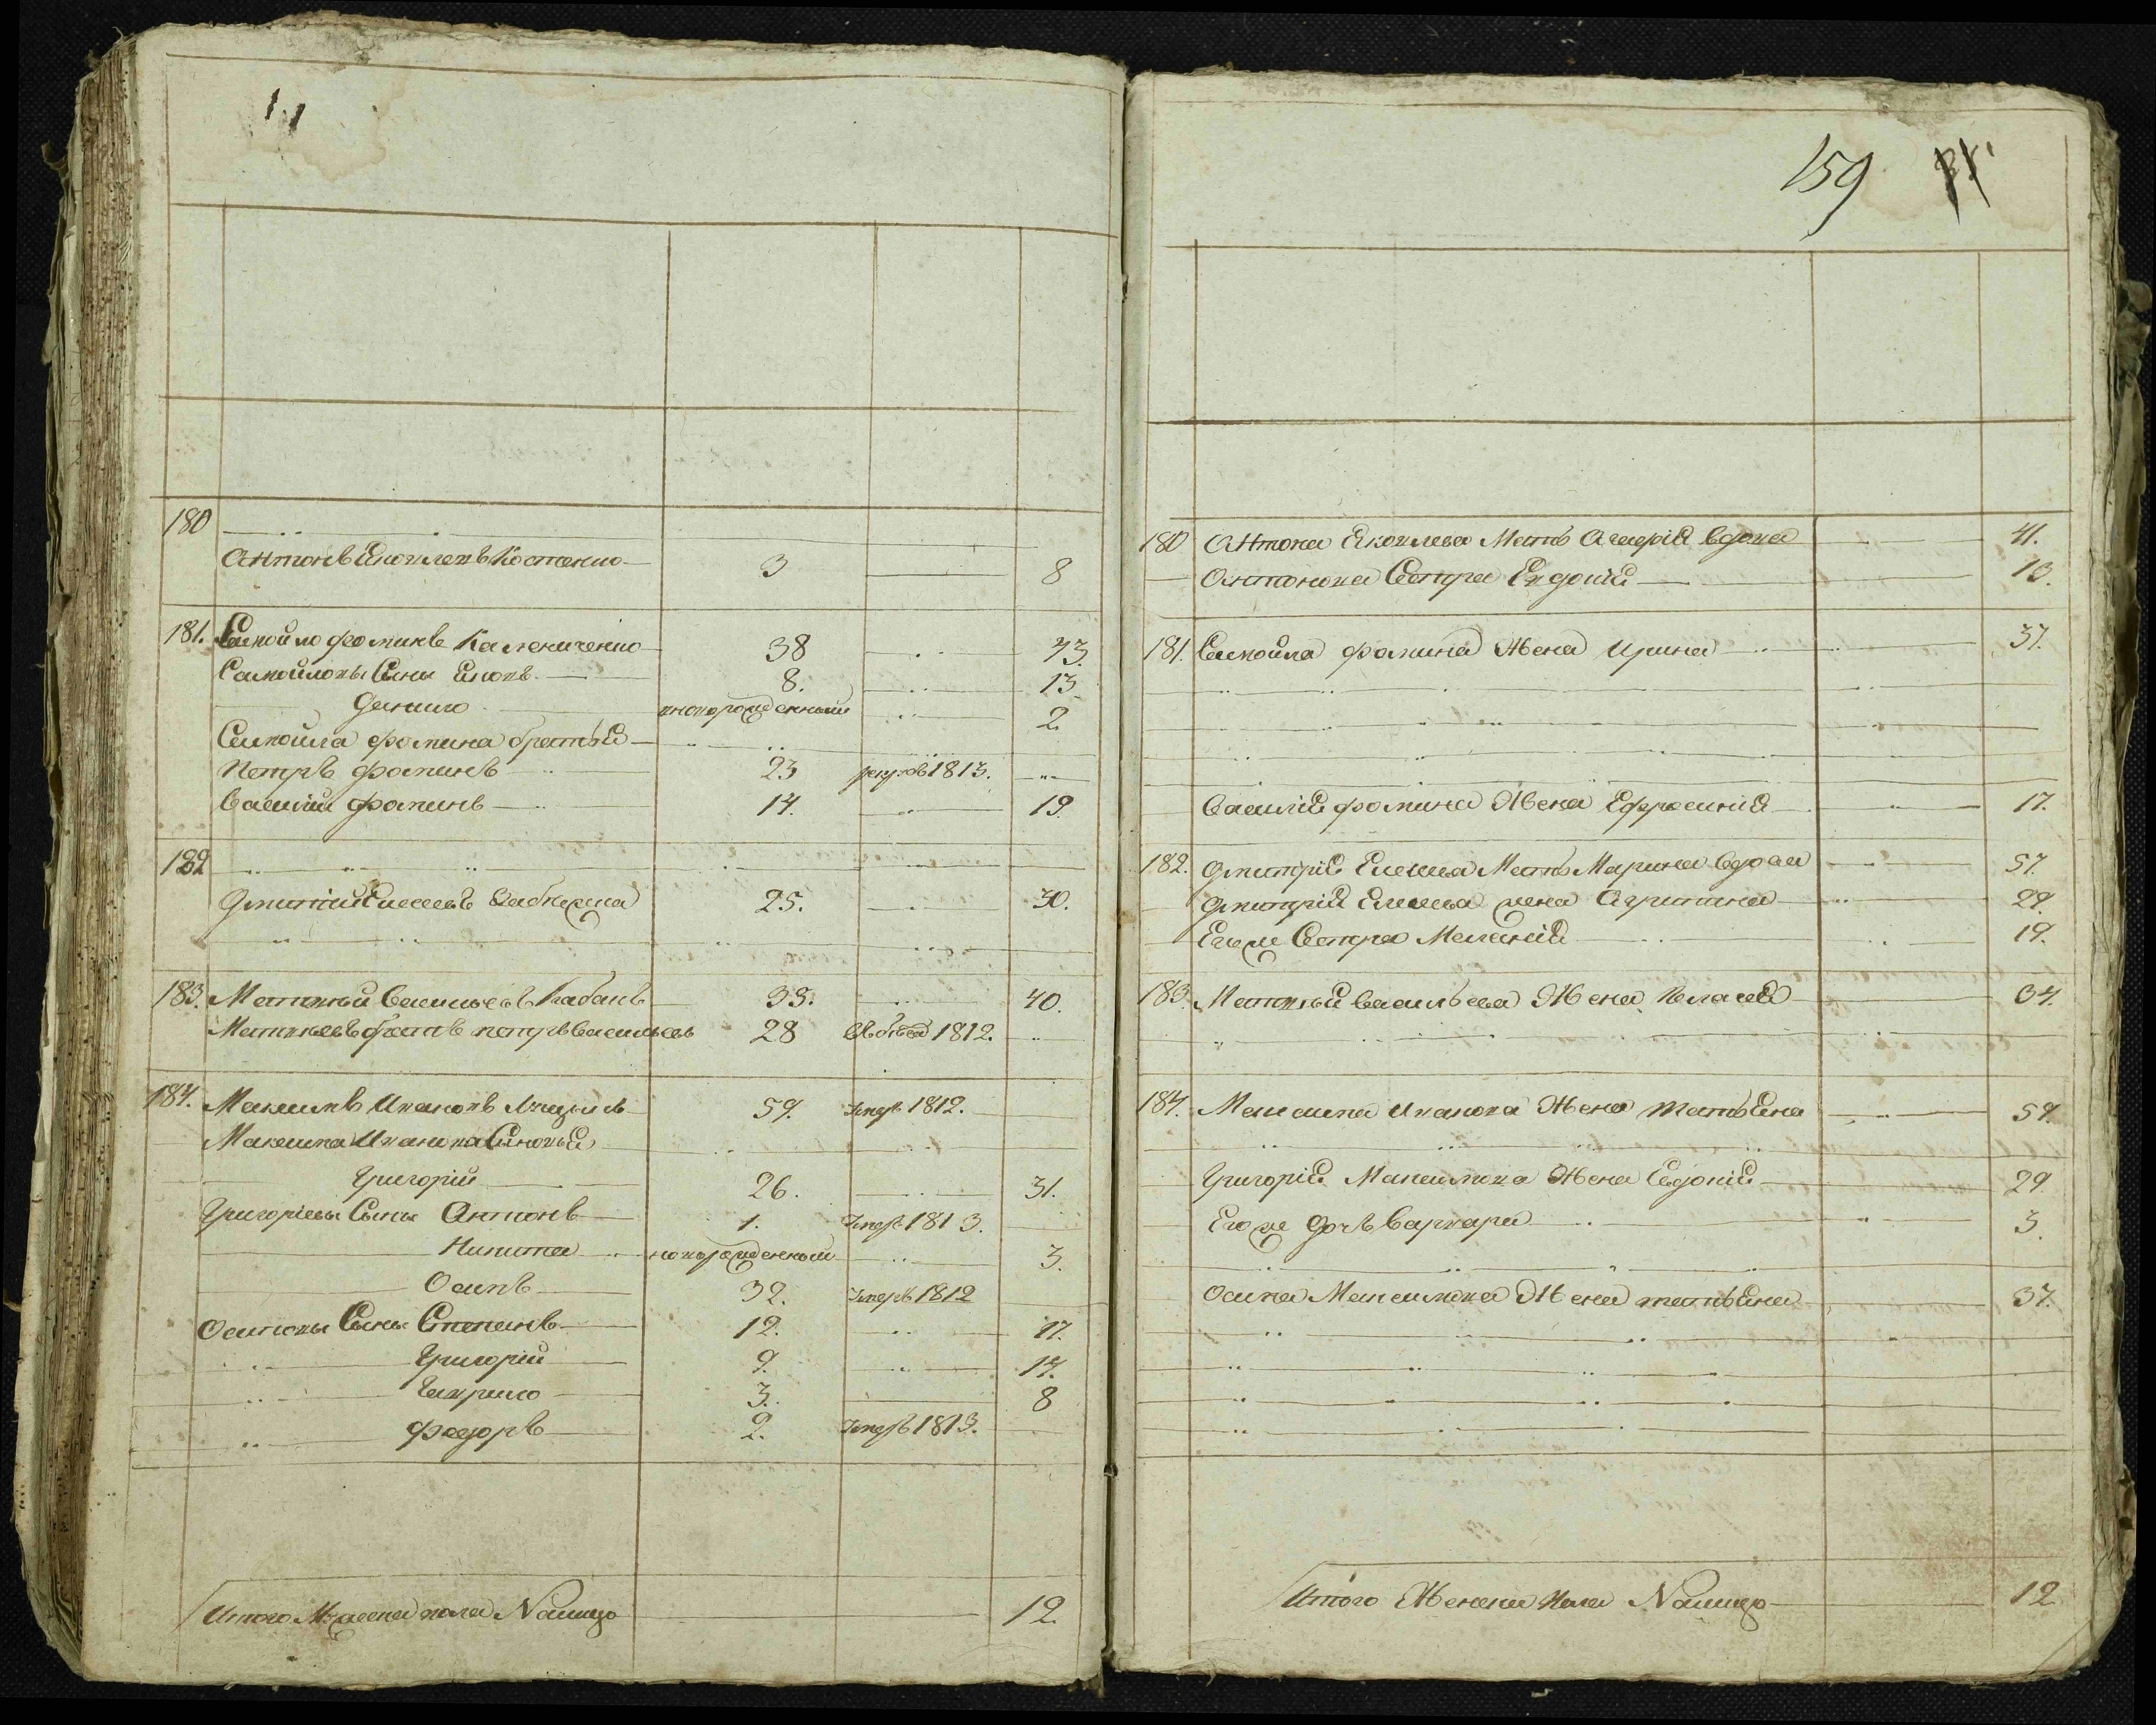 159
180
Антонъ Яковлевъ Костенко 3 8
181. Самойло Фоминъ Калениченко 38 43.
Самойловы Сыны Яковъ 8. 13
Данило новорожденный 2
Самойла Фомина братья
Петръ Фоминъ 23 рекрутъ 1813.
Василий Фоминъ 14. 19.
182
Дмитрий Елисеевъ 25. 30.
183. Матвей Васильевъ Кабанъ 35. 40.
Матвеевъ братъ Петръ Васильевъ 28 1812.
184. Максимъ Ивановъ 59. умеръ 1812.
Максима Иванова Сыновья
Григорій 26. 31.
Григоріевы Сыны Антонъ 1. умеръ 1813.
Никита новорожденный 3.
Осипъ 32. умеръ 1812
Осиповы Сыны Степанъ 12. 17.
Григорій 9. 14.
Гаврило 3. 8
Федоръ 2. умеръ 1813.
Итого Мужеска пола На лицо 12.
180 Антона Яковлева Мать вдова 41.
Антонова Сестра Евдокія 13.
181. Самойла Фомина Жена Ирина 37.
Василія Фомина Жена Ефросинія 17.
182. Дмитрія Елисеева Мать Марина вдова 57.
Дмитрія Елисеева жена Агрипина 29.
Егоже Сестра Меланія 19.
183. Матвея Васильева Жена Пелагея 34.
184. Максима Иванова Жена Татьяна 59.
Григорія Максимова Жена Евдокія 29.
Егоже Дочь Варвара 3.
Осипа Максимова Жена Татьяна 37.
Итого Женска Пола На лицо 12